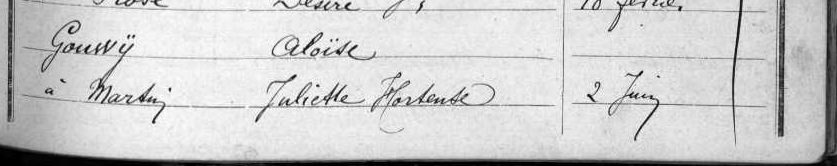 Désiré
Gouwÿ Aloïse
à Martin Juliette Hortense 2 Juin